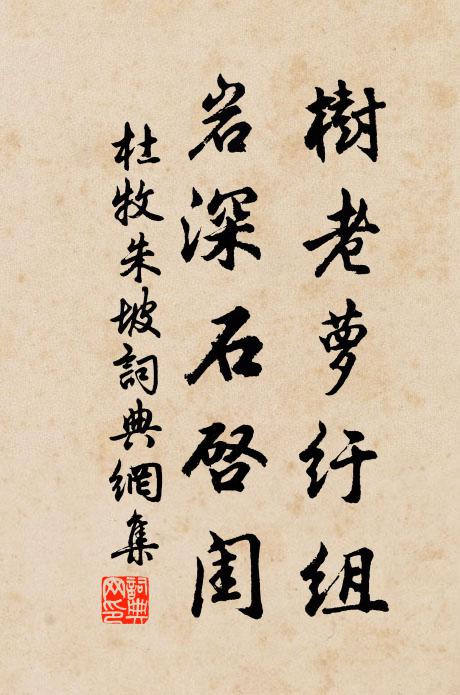 樹老萝纡組
岩深石啓闺
杜牧朱坡詞典網集
詞典
网印